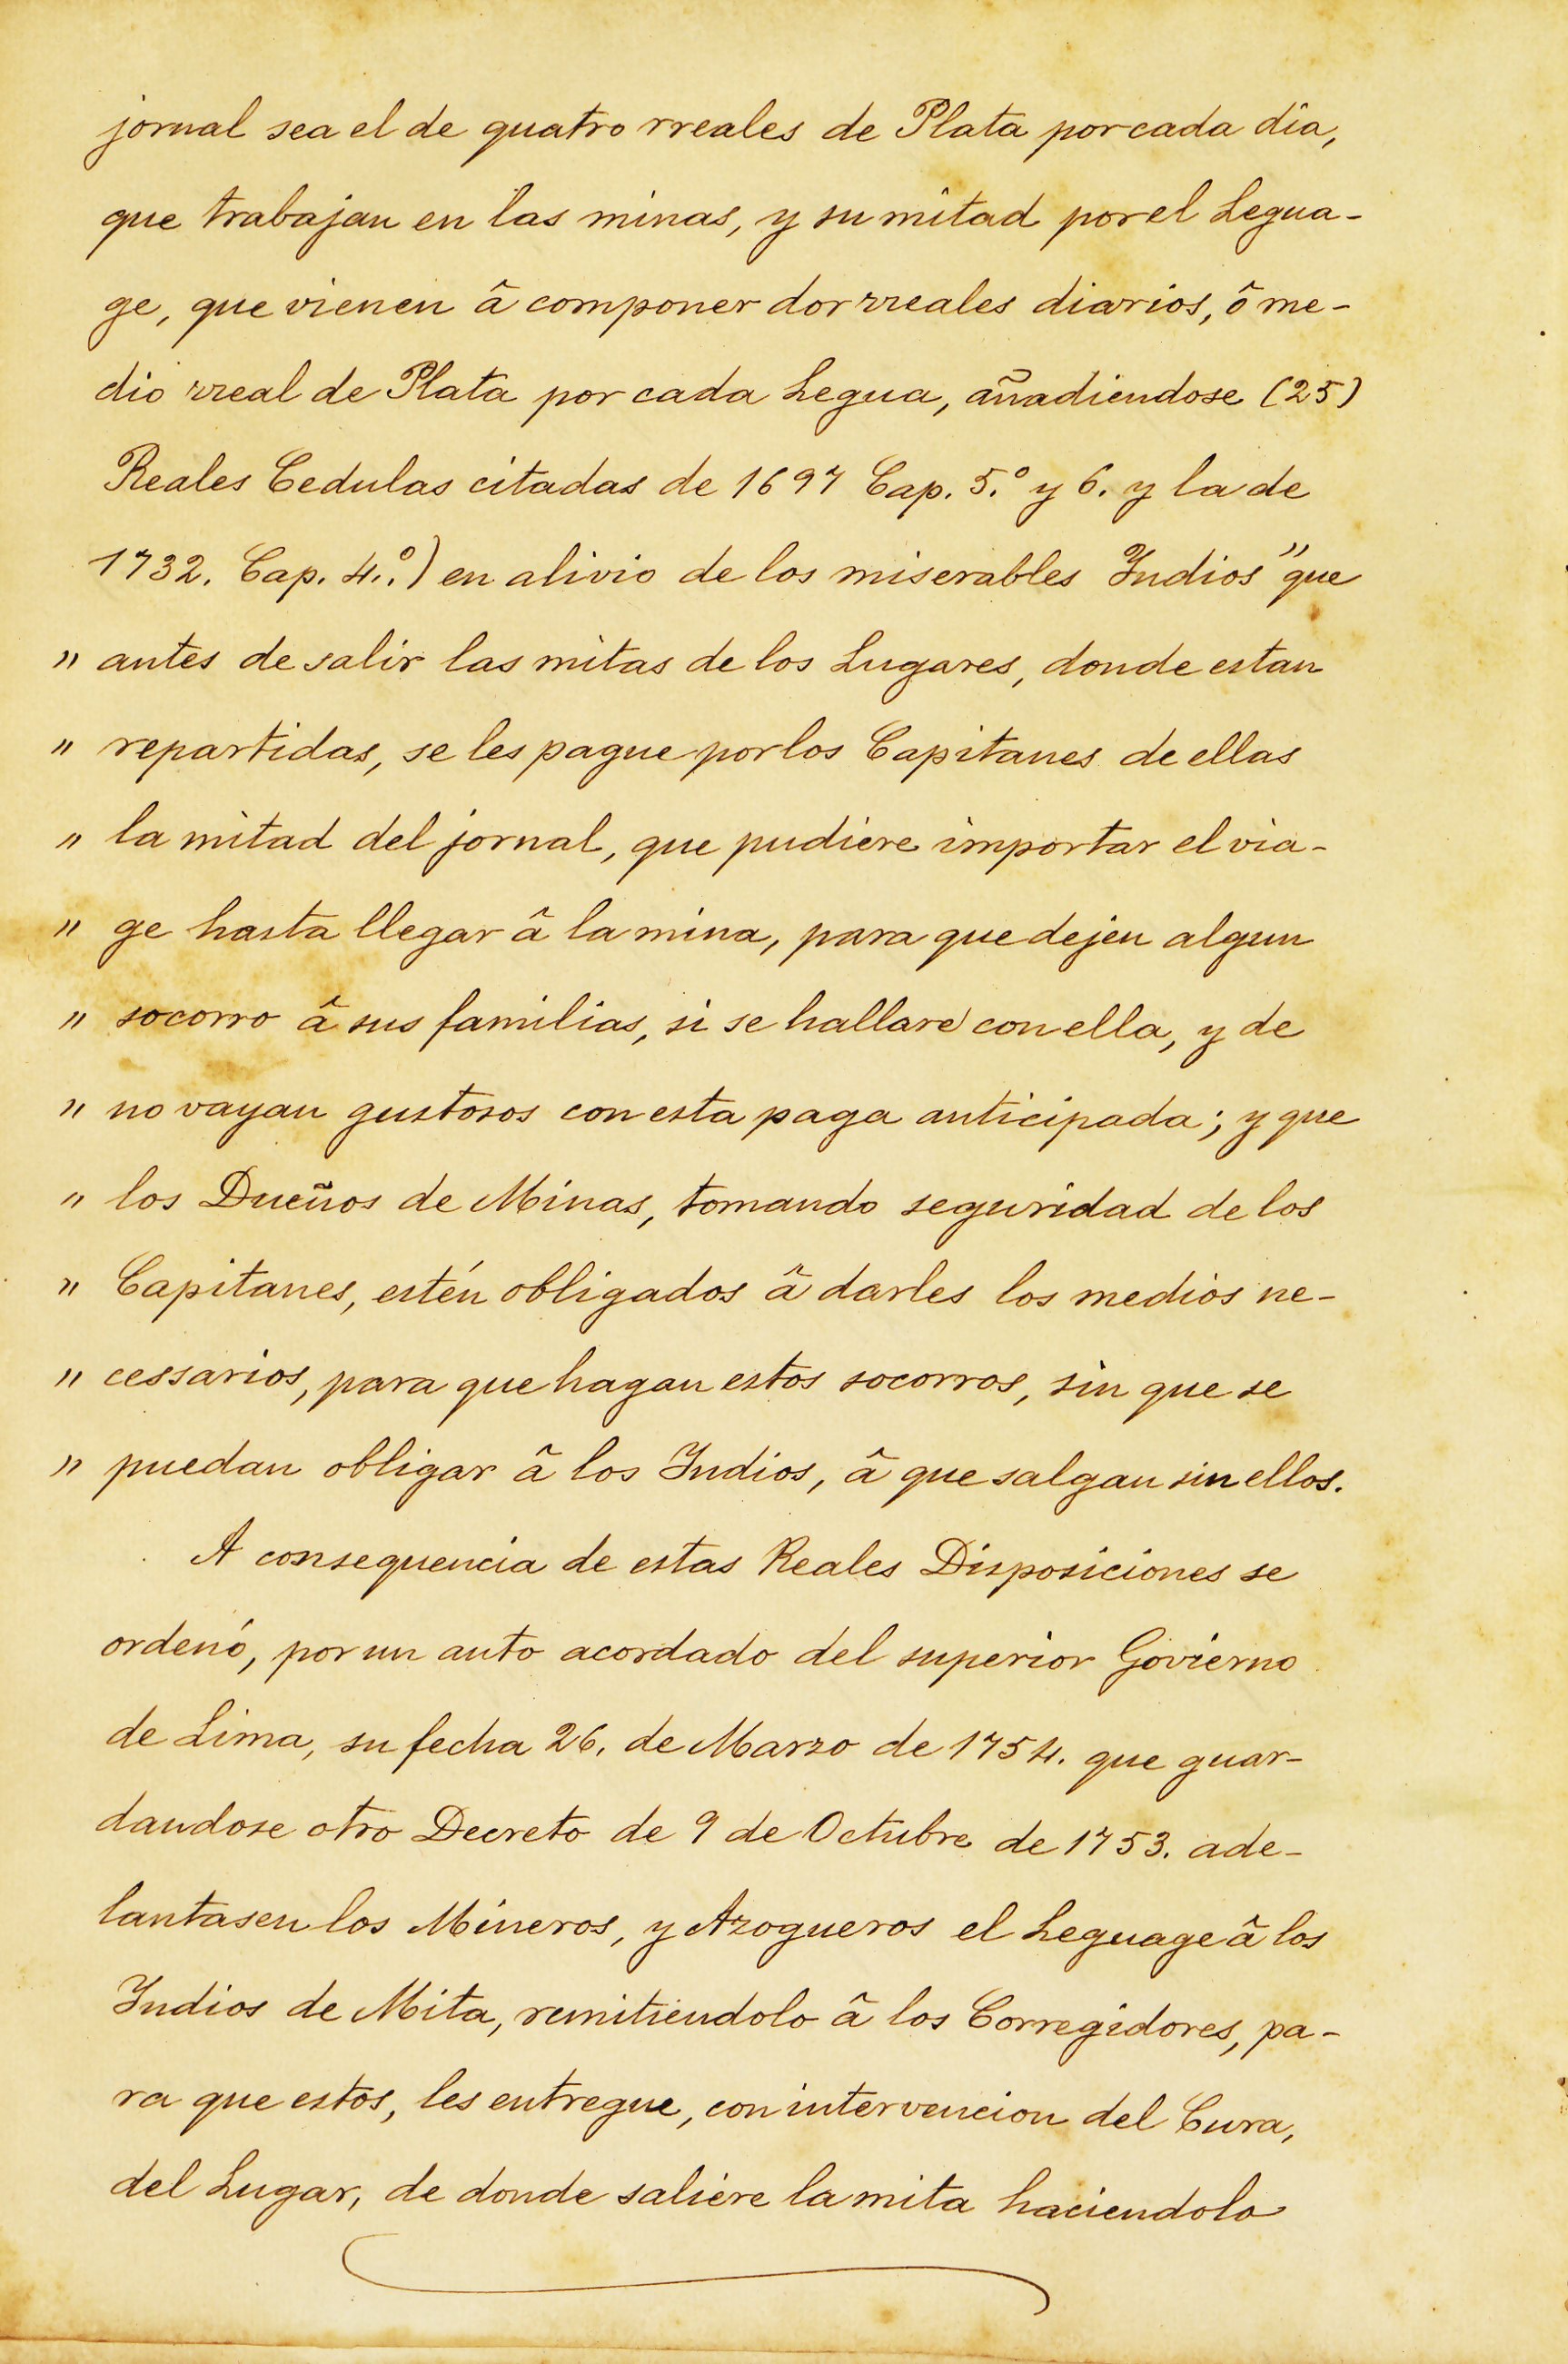 jornal sea el de quatro rreales de Plata por cada dia,
que trabajan en las minas, y su mitad por el Legua-
ge, que vienen â componer dos rreales diarios, ô me-
dio rreal de Plata por cada Legua, añadiendose (25)
Reales Cedulas citadas de 1697 Cap. 5.º y 6. y la de
1732. Cap. 4.º) en alivio de los miserables Indios" que
" antes de salir las mitas de los Lugares, donde estan
" repartidas, se les pague por los Capitanes de ellas
" la mitad del jornal, que pudiere importar el via-
" ge hasta llegar â la mina, para que dejen algun
" socorro â sus familias, si se hallare con ella, y de
" no vayan gustosos con esta paga anticipada; y que
" los Dueños de Minas, tomando seguridad de los
" Capitanes, estén obligados â darles los medios ne-
" cessarios, para que hagan estos socorros, sin que se
" puedan obligar â los Indios, â que salgan sin ellos.
A consequencia de estas Reales Disposiciones se
ordenó, por un auto acordado del superior Govierno
de Lima, su fecha 26. de Marzo de 1754. que guar-
dandose otro Decreto de 9 de Octubre de 1753. ade-
lantasen los Mineros, y Azogueros el Leguage â los
Indios de Mita, remitiendolo â los Corregidores, pa-
ra que estos, les entregue, con intervencion del Cura,
del Lugar, de donde saliere la mita haciendolo